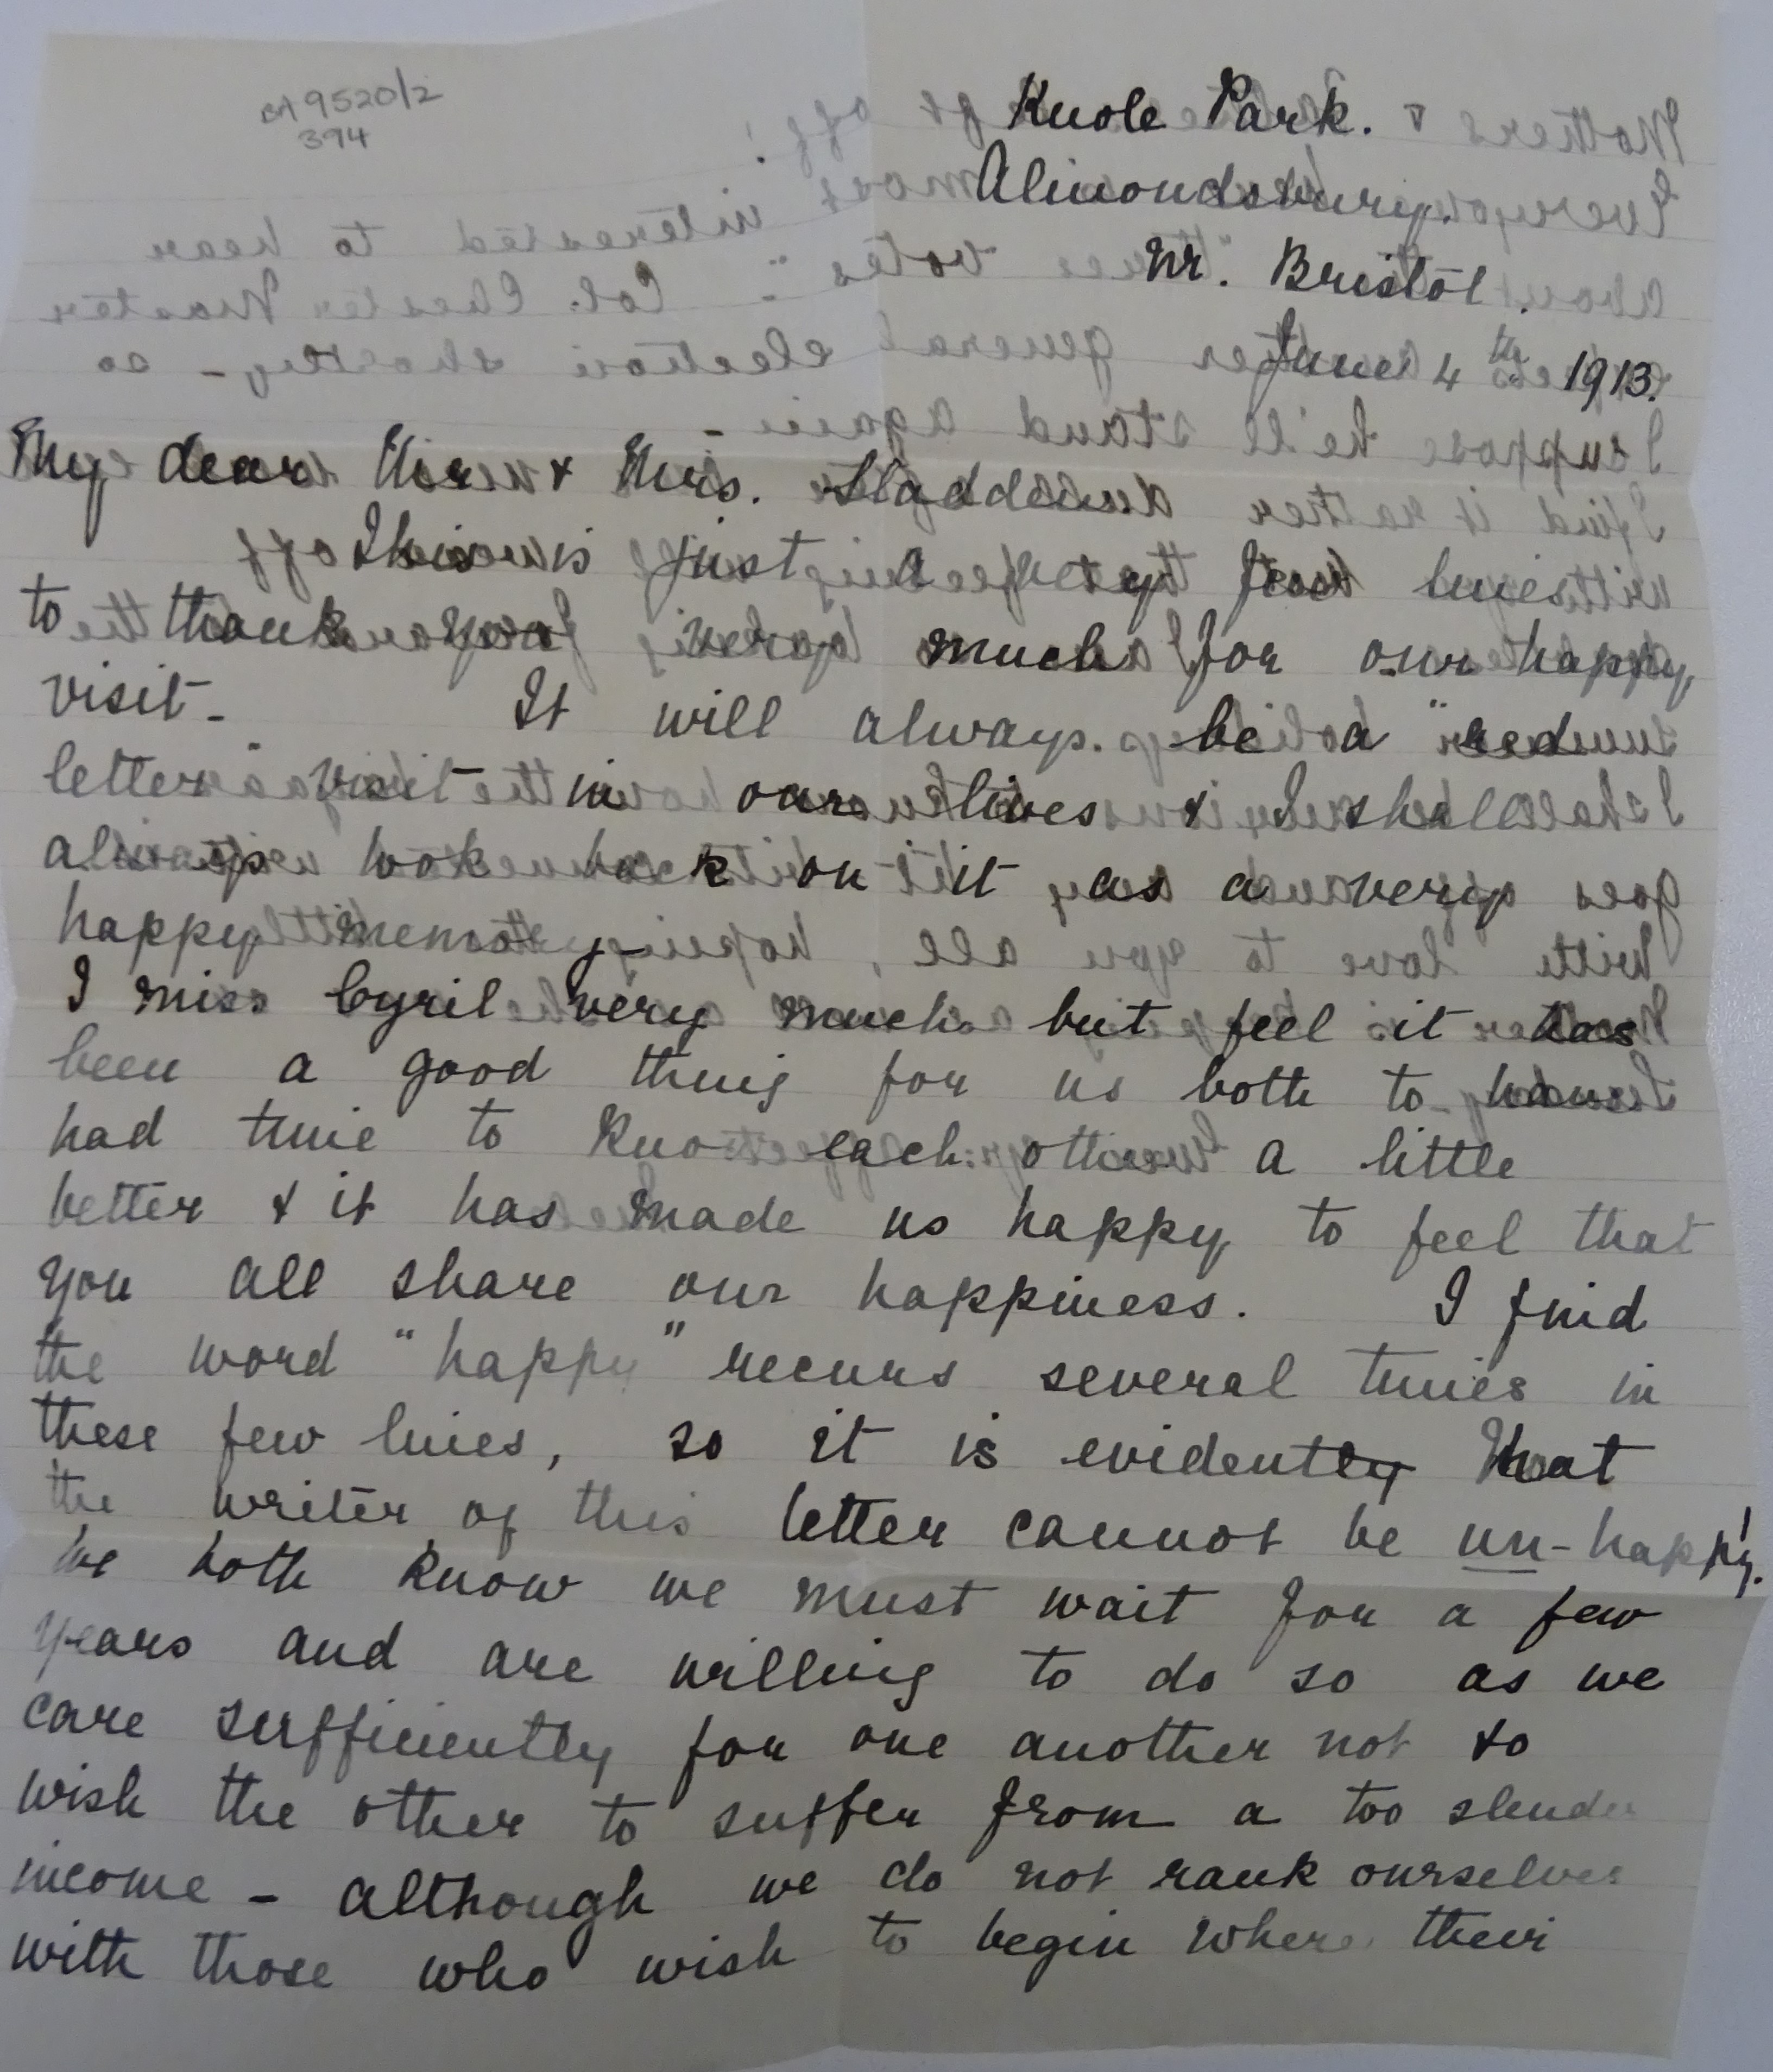 BA 9520/2
394
Knole Park.
Almondsbury.
Nr. Bristol.
June 4th 1913.
My dear Mr & Mrs. Sladden
This is just a very few lines
to thank you very much for our happy
visit - It will always be a "red
letter" visit in our lives & I shall
always look back on it as a very
happy memory -
I miss Cyril very much but feel it has
been a good thing for us both to have
had time to know each other a little
better & it has made us happy to feel that
you all share our happiness. I find
the word "happy" recurs several times in
these few lines, so it is evidently that
the writer of this letter cannot be un-happy!
We both know we must wait for a few
years and are willing to do so as we
care sufficiently for one another not to
wish the other to suffer from a too slender
income - although we do not rank ourselves
with those who wish to begin where their